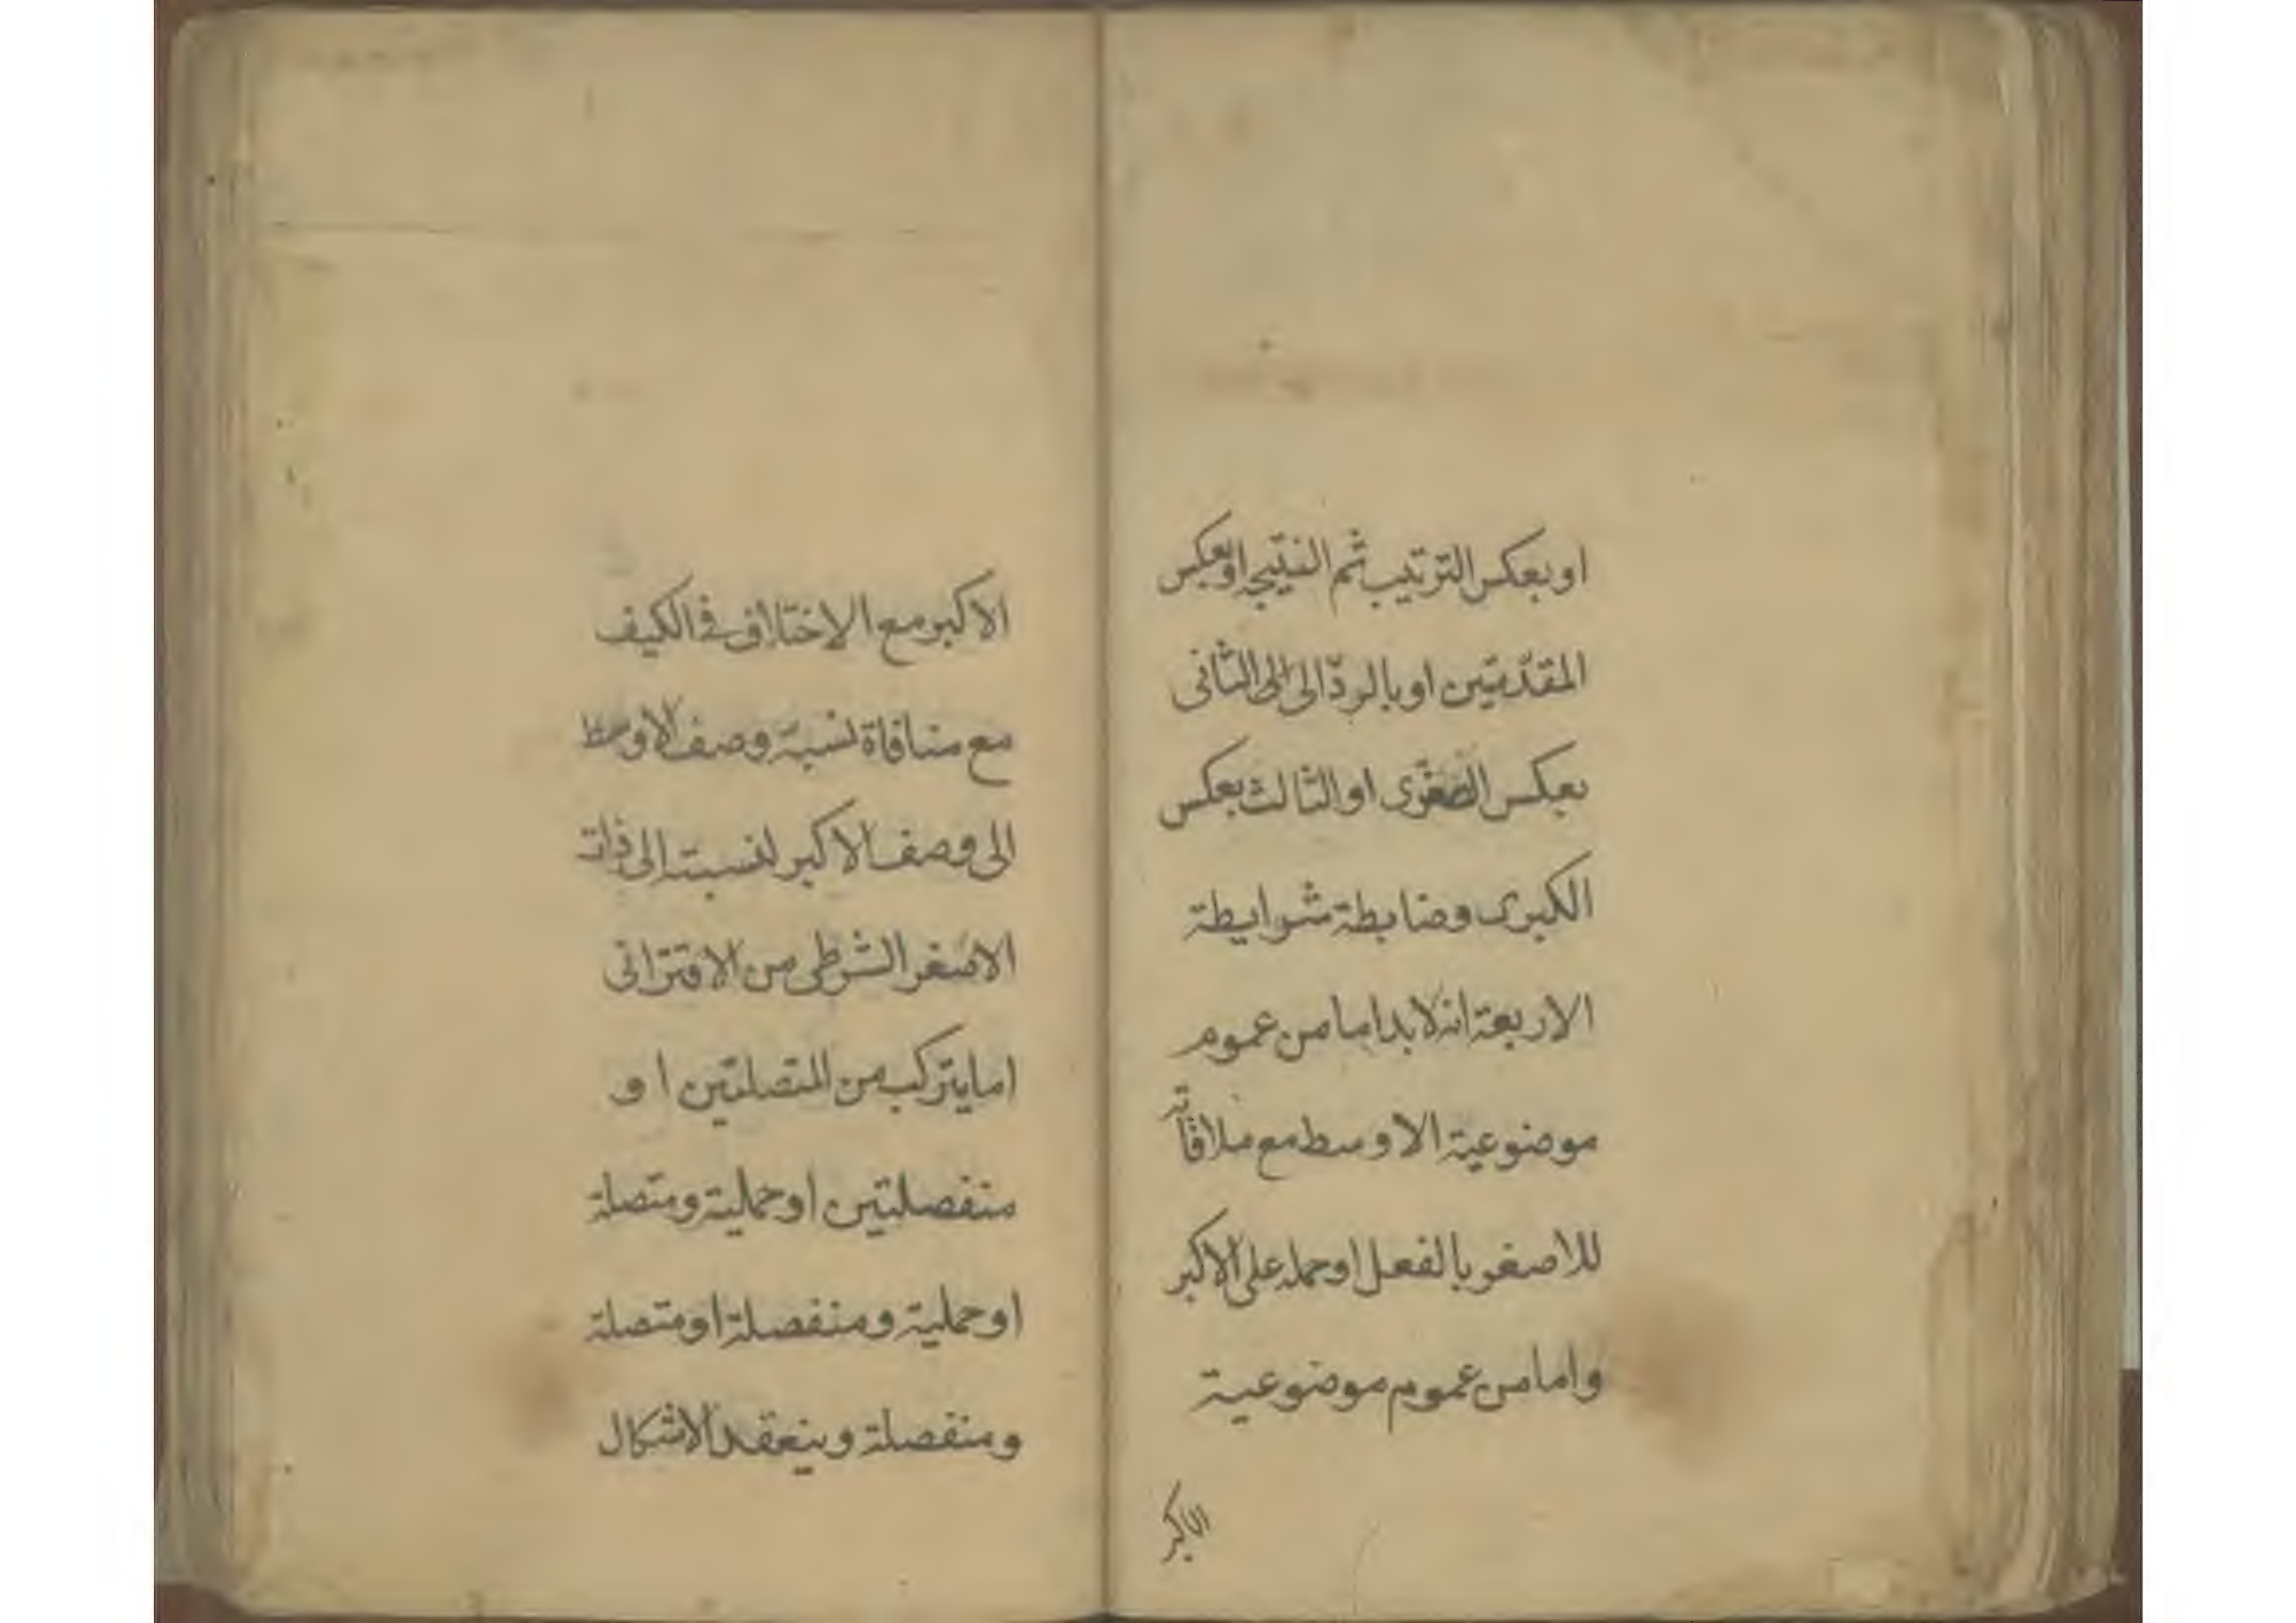 او بعكس الترتيب ثم النتيجه او بعكس
المقدّمتين او بالردّ الى الى الثانى
بعكس الصّغرى او الثالث بعكس
الكبرى وضابطة شرايطة
الاربعة انه لا بد اما من عموم
موضوعية الاوسط مع ملاقاته
للاصغر بالفعل او حمله على الاكبر
واما من عموم موضوعية
الاكبر
الاكبر مع الاختلاف فى الكيف
مع منافاة نسبة وصف الاوسط
الى وصف الاكبر لنسبته الى ذات
الاصغر الشرطى من الاقترانى
اما يتركب من المتصلتين او
منفصلتين او حملية ومتصلة
او حملية ومنفصلة او متصلة
ومنفصلة وينعقد الاشكال